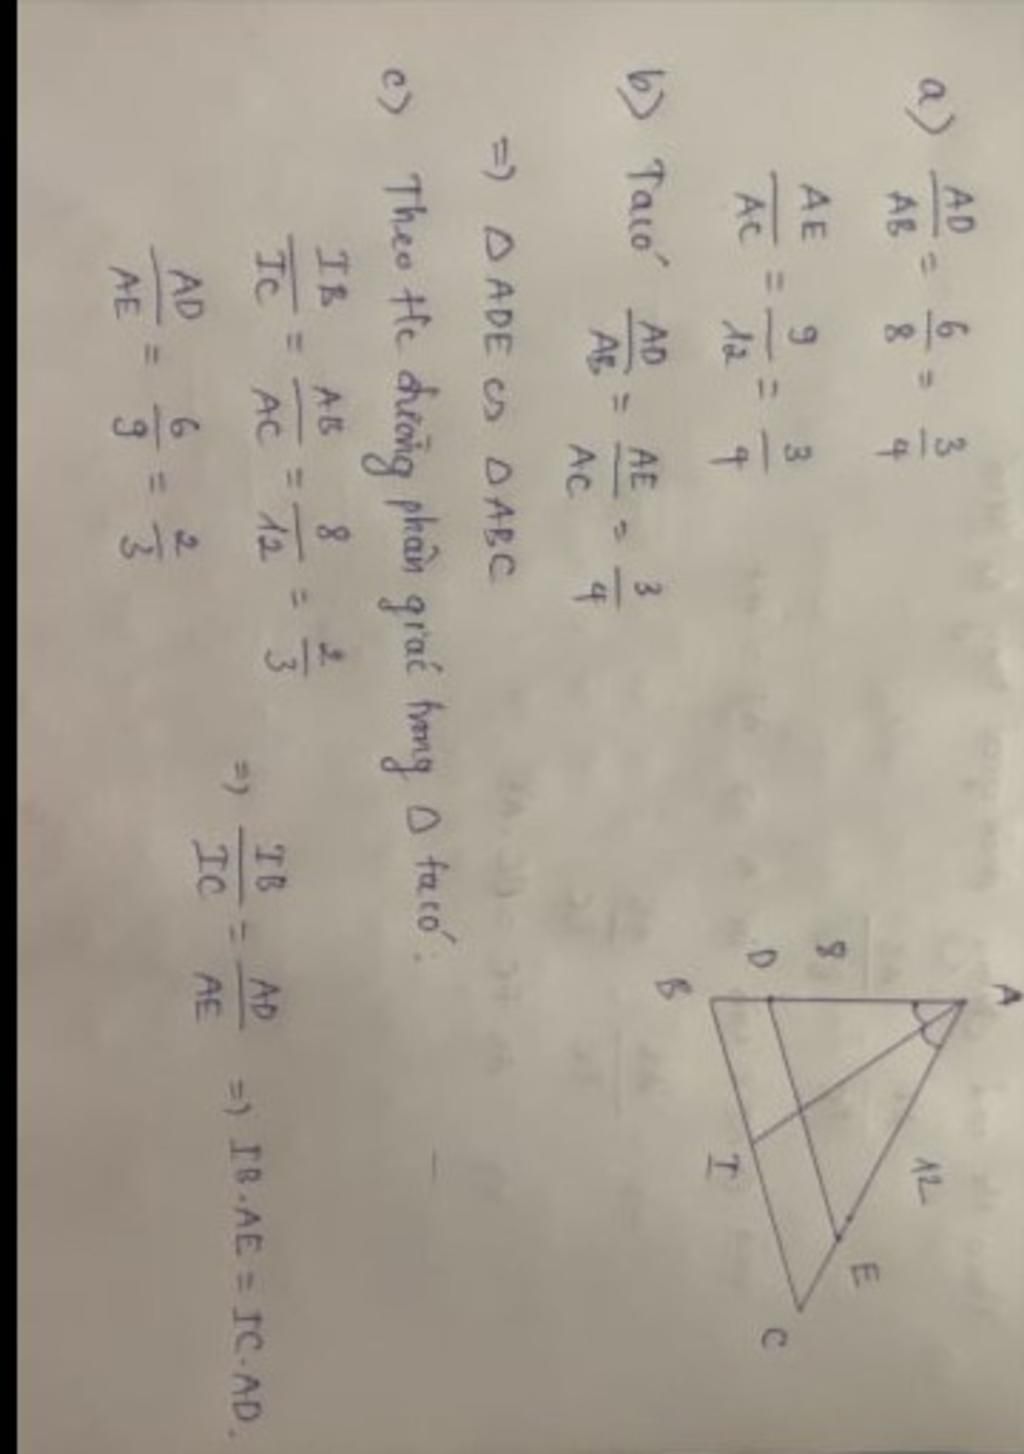 a) AD/AB = 6/8 = 3/4
AE/AC = 9/12 = 3/4
b) Ta có AD/AB = AE/AC = 3/4
=) Δ ADE ᔕ Δ ABC
c) Theo t/c đường phân giác trong Δ ta có :
IB/IC = AB/AC = 8/12 = 2/3
AD/AE = 6/9 = 2/3
=) IB/IC = AD/AE =) IB.AE = IC.AD.
A
8
12
D
E
B
I
C